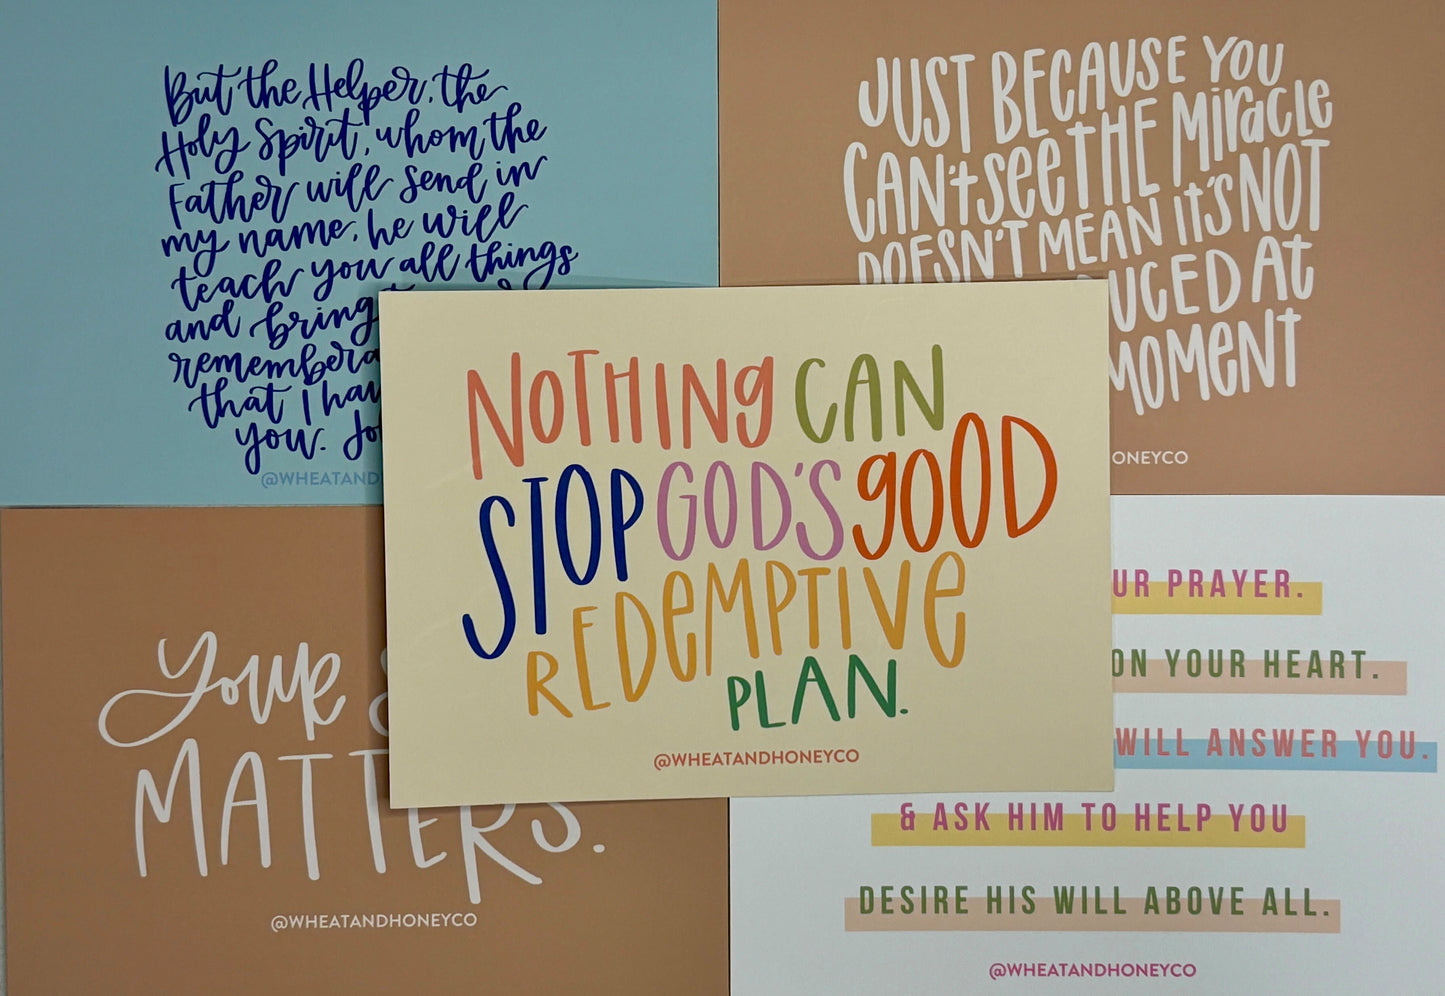 But the Helper, the
Holy Spirit, whom the
Father will send in
my name, he will
teach you all things
and bring
that I
you.
@WHEATAND
JUST BECAUSE YOU
CAN't see THE MIRacle
DOESN'T MEAN it's NOT
AT
MOMENT
ONEYCO
NOTHING CAN
STOP GOD'S gOOD
REDeMPTIVe
PLAN.
@WHEATANDHONEYCO
your
MATTERS.
@WHEATANDHONEYCO
UR PRAYER.
ON YOUR HEART.
WILL ANSWER YOU.
& ASK HIM TO HELP YOU
DESIRE HIS WILL ABOVE ALL.
@WHEATANDHONEYCO